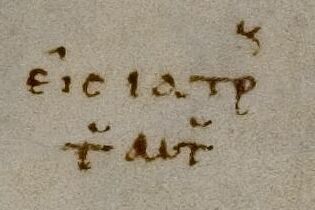 εἰς ιατρ
τ̆ αυτ̆